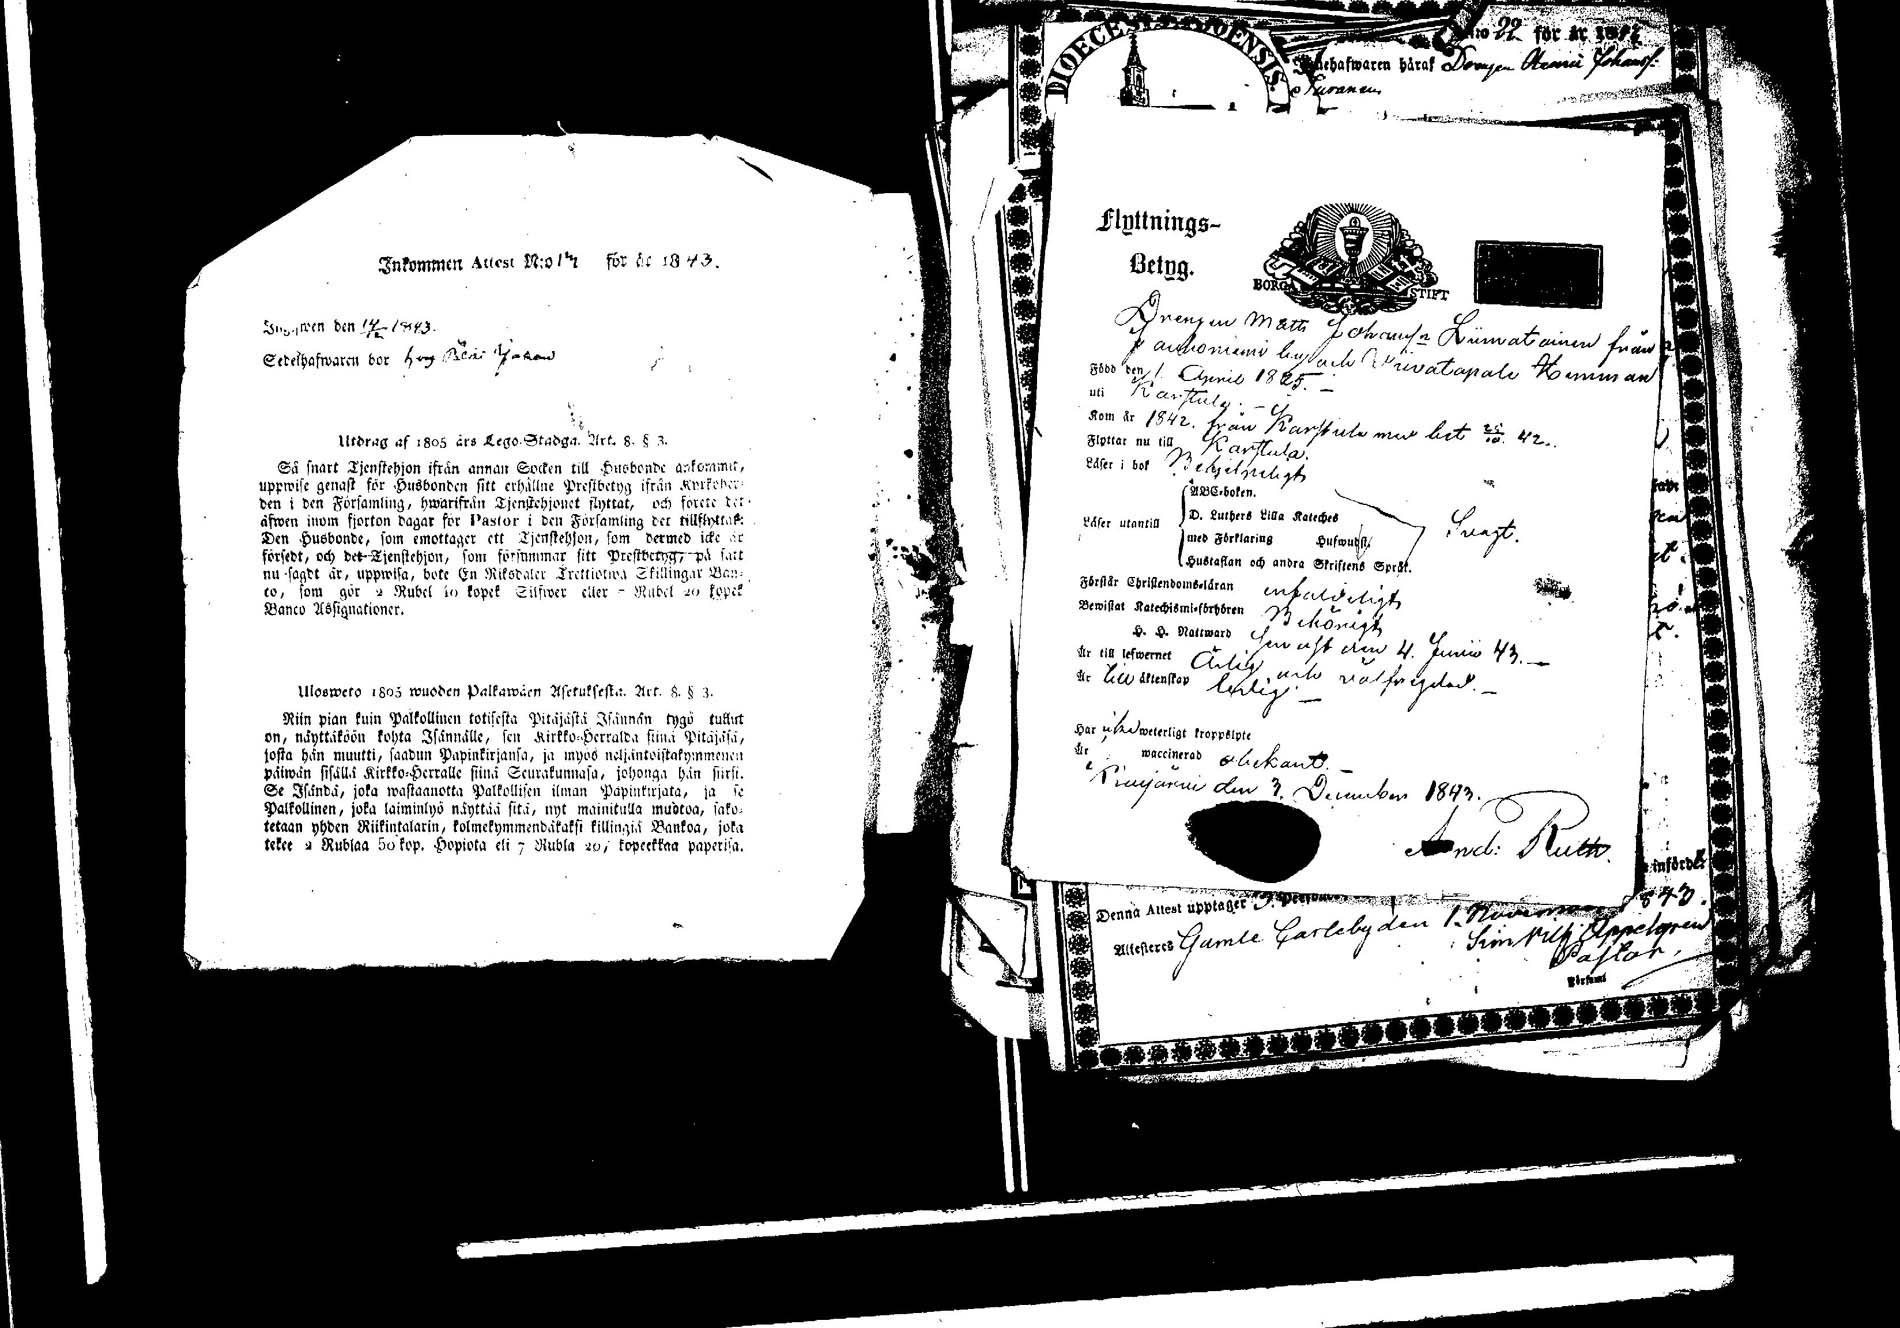 Inkommen Attest N:o för år 1843.
den 14/12 1843.
Sedelhafwaren bor hos
Utdrag af 1805 års Lego-Stadga. Art. 8. § 3.
Så snart Tjenstehjon ifrån annan Socken till Husbonde ankommit,
uppwise genast för Husbonden sitt erhållne Prestbetyg ifrån Kyrkoher-
den i den Församling, hwarifrån Tjenstehjonet flyttat, och förete det
äfwen inom fjorton dagar för Pastor i den Församling det tillflyttat.
Den Husbonde, som emottager ett Tjenstehjon, som dermed icke är
försedt, och det Tjenstehjon, som försummar sitt Prestbetyg, på sätt
nu sagdt är, uppwisa, bote En Riksdaler Trettiotwå Skillingar Ban-
co, som gör 2 Rubel kopek Silfwer eller 7 Rubel 20 kopek
Banco Assignationer.
Ulosweto 1805 wuoden Palkawäen Asetuksesta. Art. 8. § 3.
Niin pian kuin Palkollinen totisesta Pitäjästä Isännän tygö tullut
on, näyttäköön kohta Isännälle, sen Kirkko-Herralda siinä Pitäjäsä,
josta hän muutti, saadun Papinkirjansa, ja myös neljäntoistakymmenen
päiwän sisällä Kirkko-Herralle siinä Seurakunnasa, johonga hän siirsi.
Se Isändä, joka wastaanotta Palkollisen ilman Papinkirjata, ja se
Palkollinen, joka laiminlyö näyttää sitä, nyt mainitulla muotoa, sako-
tetaan yhden Riikintalarin, kolmekymmendäkaksi killingiä Bankoa, joka
tekee 2 Rublaa 50 kop. Hopiota eli 7 Rubla 20, kopeekkaa paperisa.
DIOECES
N:o 22 för år
Innehafwaren häraf Drengen Henric Johansf:
Flyttnings-
Betyg.
BORGÅ STIFT
Drengen Matts Johansn Liimatainen från
by och Hemman
Född den 1. April 1825. —
uti Karstula. —
Kom år 1842. från Karstula med bet 25/10. 42.
Flyttar nu till Karstula.
Läser i bok Behjelpeligt
ABC-boken.
D. Luthers Lilla Kateches
Läser utantill
med Förklaring Huswudst.
Hustaflan och andra Skriftens Språk.
Svagt.
Förstår Christendomsläran enfaldeligt
Bewistat Katechismi-förhören Behörigt
H. H. Nattward den 4. Junii 43. —
Är till lefwernet Ärlig och välfrejdad. —
Är till äktenskap ledig —
Har icke weterligt kroppslyte
Är waccinerad obekant. —
den 3. December 1843.
And: Ruth.
införd
Denna Attest upptager
Attesteres Gamle Carleby den 1. November 1843.
Sim Vilh: Appelgren
Pastor.